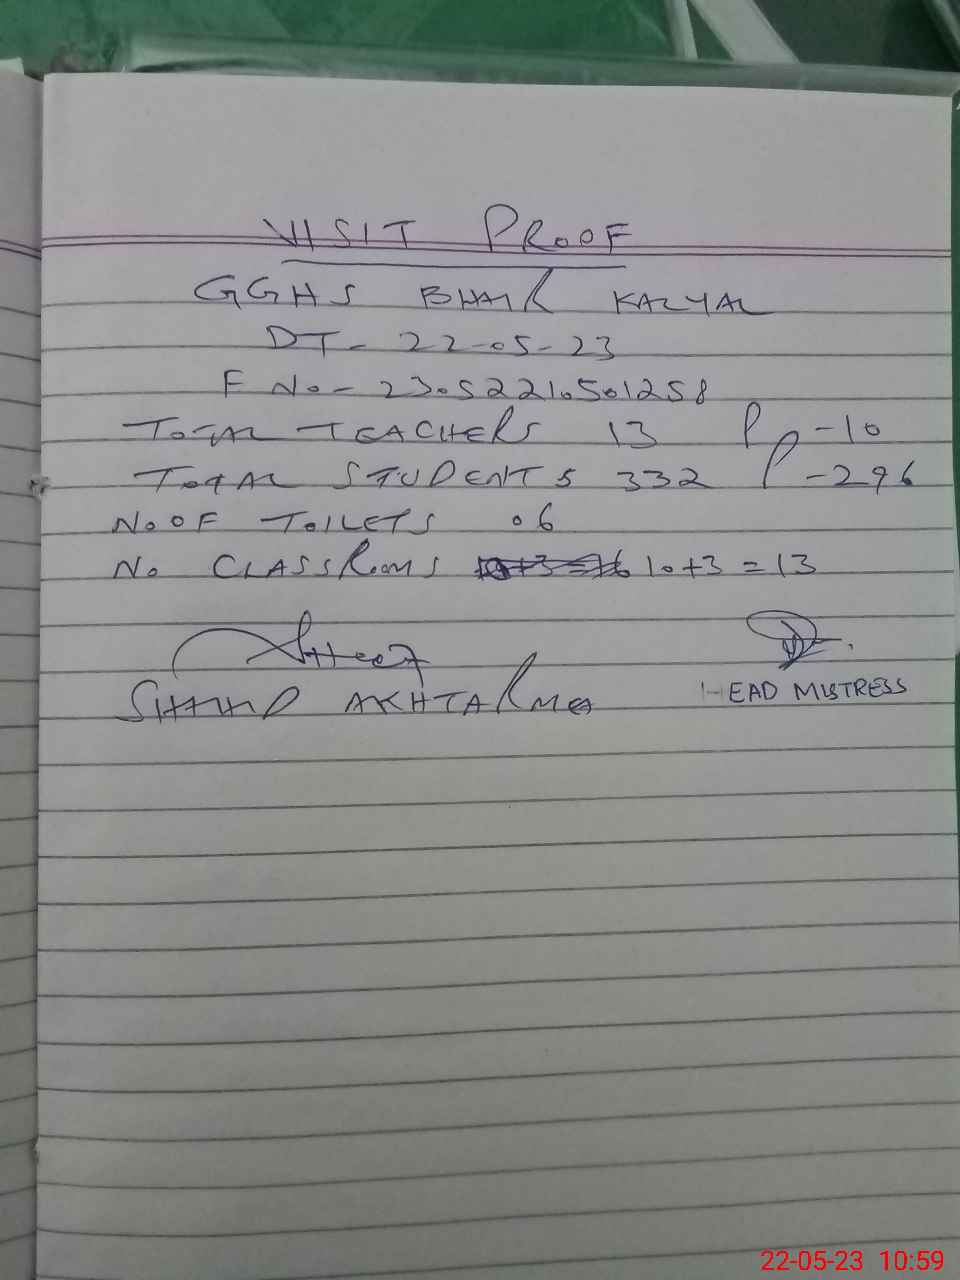 VISIT PROOF
GGHS BHAIR KALYAL
DT- 22-05-23
F No- 23052210501258
TOTAL TEACHERS 13 P -10
TOTAL STUDENTS 332 P -296
NO OF TOILETS 06
No CLASSROOMS 10+3=16 10+3=13
SHAHID AKHTAR MEA
HEAD MISTRESS
22-05-23 10:59